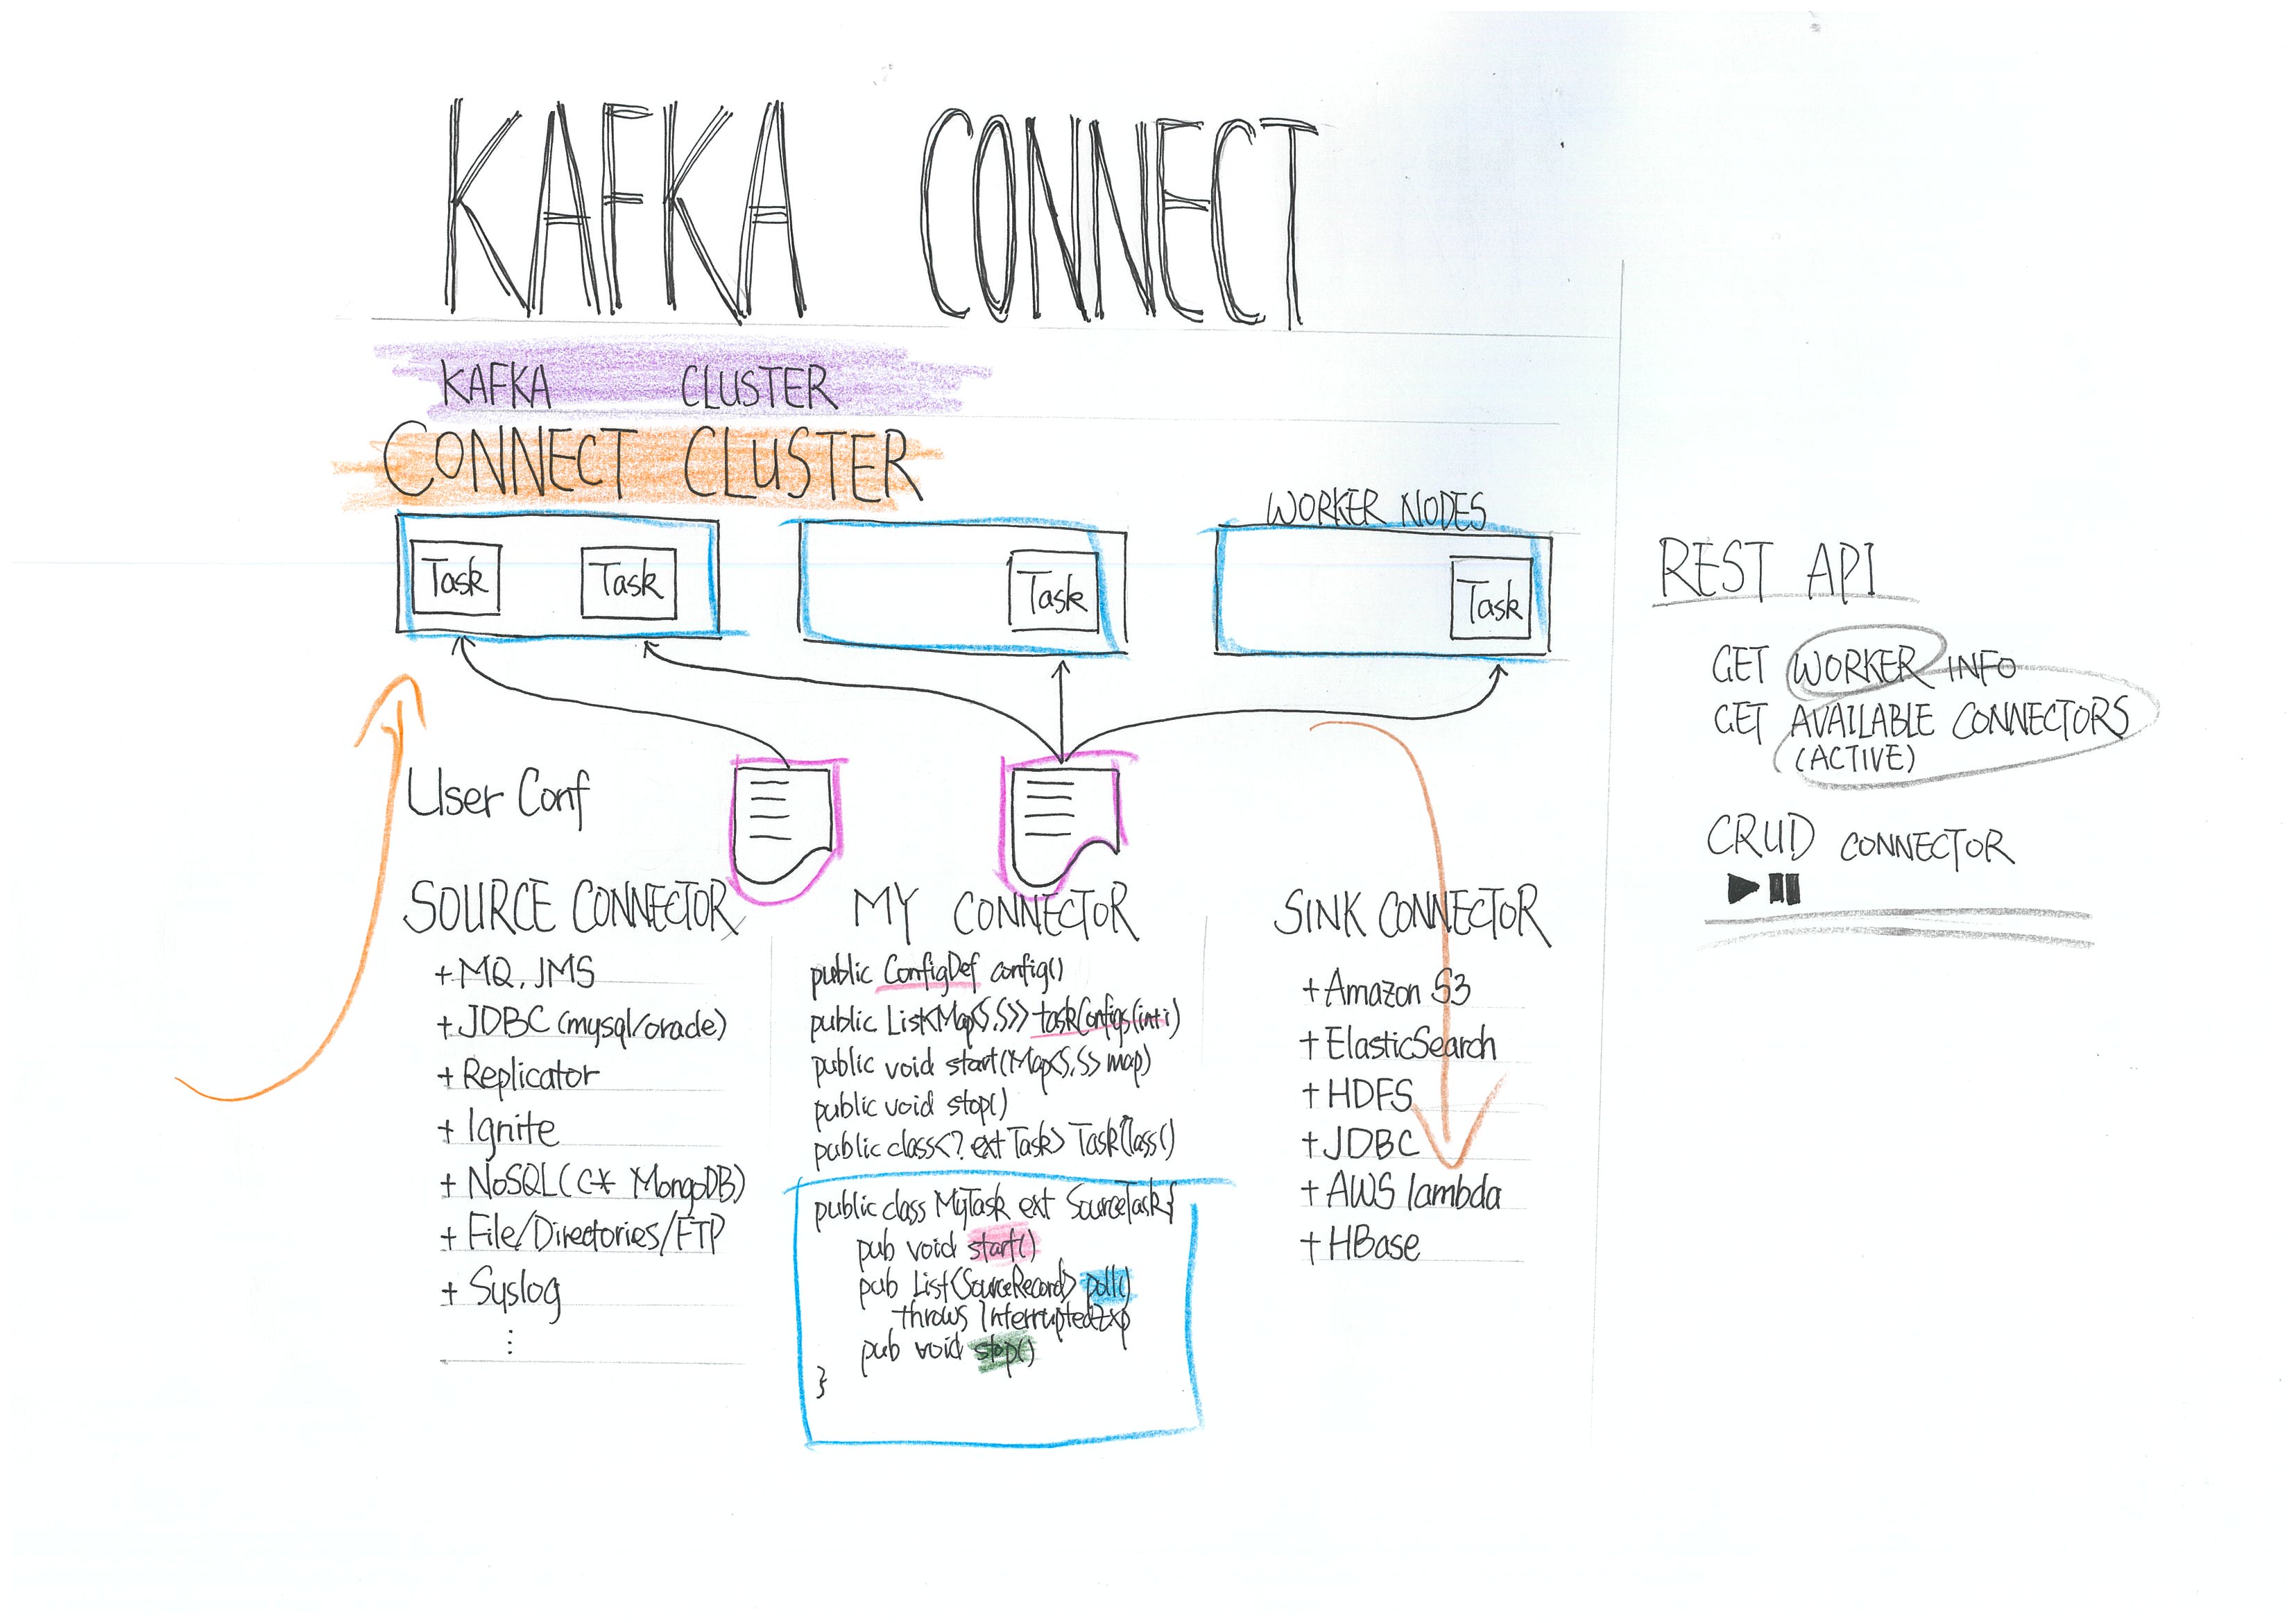 KAFKA CONNECT
KAFKA CLUSTER
CONNECT CLUSTER
WORKER NODES
Task
Task
Task
Task
User Conf
SOURCE CONNECTOR
+ MQ, JMS
+ JDBC (mysql/oracle)
+ Replicator
+ Ignite
+ NoSQL (C* MongoDB)
+ File/Directories/FTP
+ Syslog
⋮
MY CONNECTOR
public ConfigDef config()
public List<Map<S,S>> taskConfigs(int i)
public void start(Map<S,S> map)
public void stop()
public class<? ext Task> TaskClass()
public class MyTask ext SourceTask {
pub void start()
pub List<SourceRecord> poll()
throws InterruptedExp
pub void stop()
}
SINK CONNECTOR
+ Amazon S3
+ ElasticSearch
+ HDFS
+ JDBC
+ AWS lambda
+ HBase
REST API
GET WORKER INFO
GET AVAILABLE CONNECTORS
(ACTIVE)
CRUD CONNECTOR